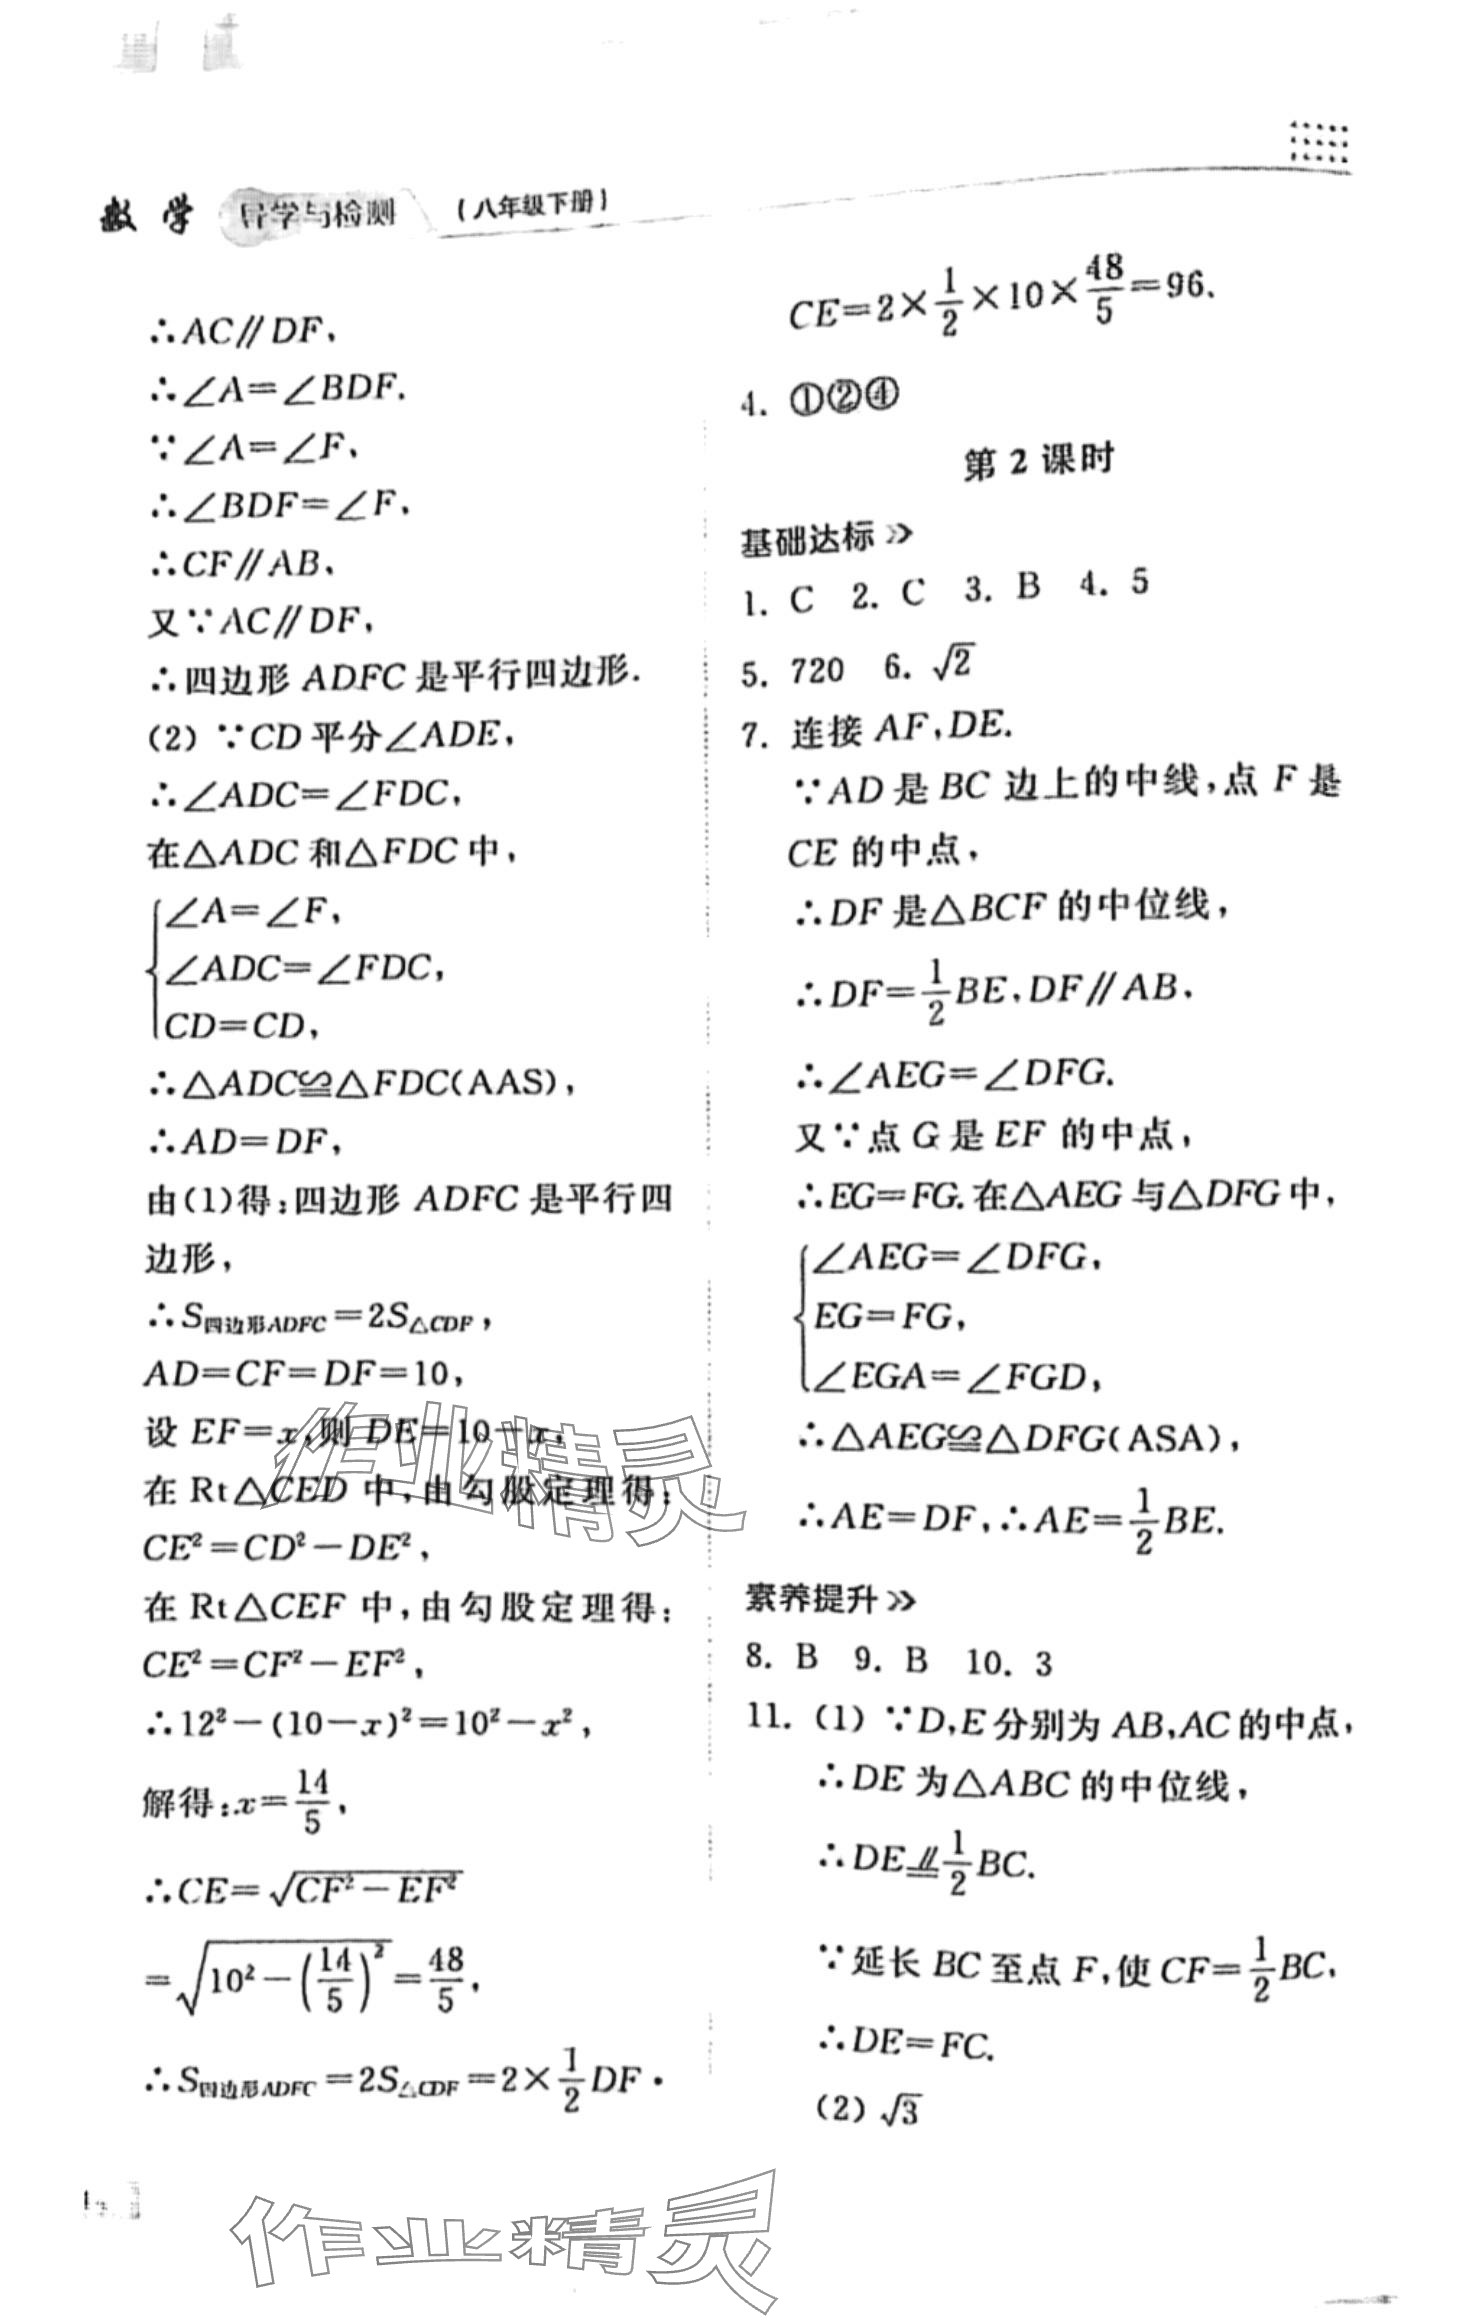 数学 导学与检测 (八年级下册)
∴AC∥DF,
∴∠A=∠BDF.
∵∠A=∠F,
∴∠BDF=∠F,
∴CF∥AB,
又∵AC∥DF,
∴四边形 ADFC 是平行四边形.
(2) ∵CD 平分∠ADE,
∴∠ADC=∠FDC,
在△ADC 和△FDC 中,
∠A=∠F,
∠ADC=∠FDC,
CD=CD,
∴△ADC≌△FDC(AAS),
∴AD=DF,
由(1)得:四边形 ADFC 是平行四
边形,
∴S四边形ADFC=2S△CDF,
AD=CF=DF=10,
设 EF=x,则 DE=10-x,
在 Rt△CED 中,由勾股定理得:
CE²=CD²-DE²,
在 Rt△CEF 中,由勾股定理得:
CE²=CF²-EF²,
∴12²-(10-x)²=10²-x²,
解得:x=14/5,
∴CE=√(CF²-EF²)
=√(10²-(14/5)²)=48/5,
∴S四边形ADFC=2S△CDF=2×1/2DF·
CE=2×1/2×10×48/5=96.
4. ①②④
第 2 课时
基础达标 »
1. C 2. C 3. B 4. 5
5. 720 6. √2
7. 连接 AF,DE.
∵AD 是 BC 边上的中线,点 F 是
CE 的中点,
∴DF 是△BCF 的中位线,
∴DF=1/2BE,DF∥AB,
∴∠AEG=∠DFG.
又∵点 G 是 EF 的中点,
∴EG=FG.在△AEG 与△DFG 中,
∠AEG=∠DFG,
EG=FG,
∠EGA=∠FGD,
∴△AEG≌△DFG(ASA),
∴AE=DF,∴AE=1/2BE.
素养提升 »
8. B 9. B 10. 3
11. (1) ∵D,E 分别为 AB,AC 的中点,
∴DE 为△ABC 的中位线,
∴DE⫽1/2BC.
∵延长 BC 至点 F,使 CF=1/2BC,
∴DE=FC.
(2) √3
作业精灵
作业精灵